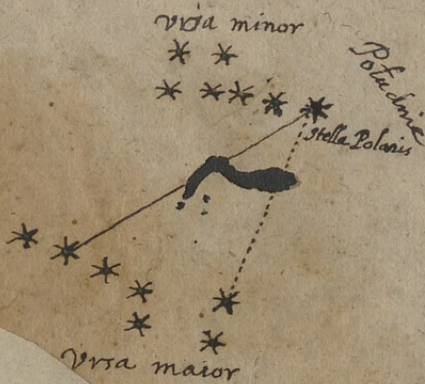 Ursa minor
Potudnie
Stella Polaris
Ursa maior